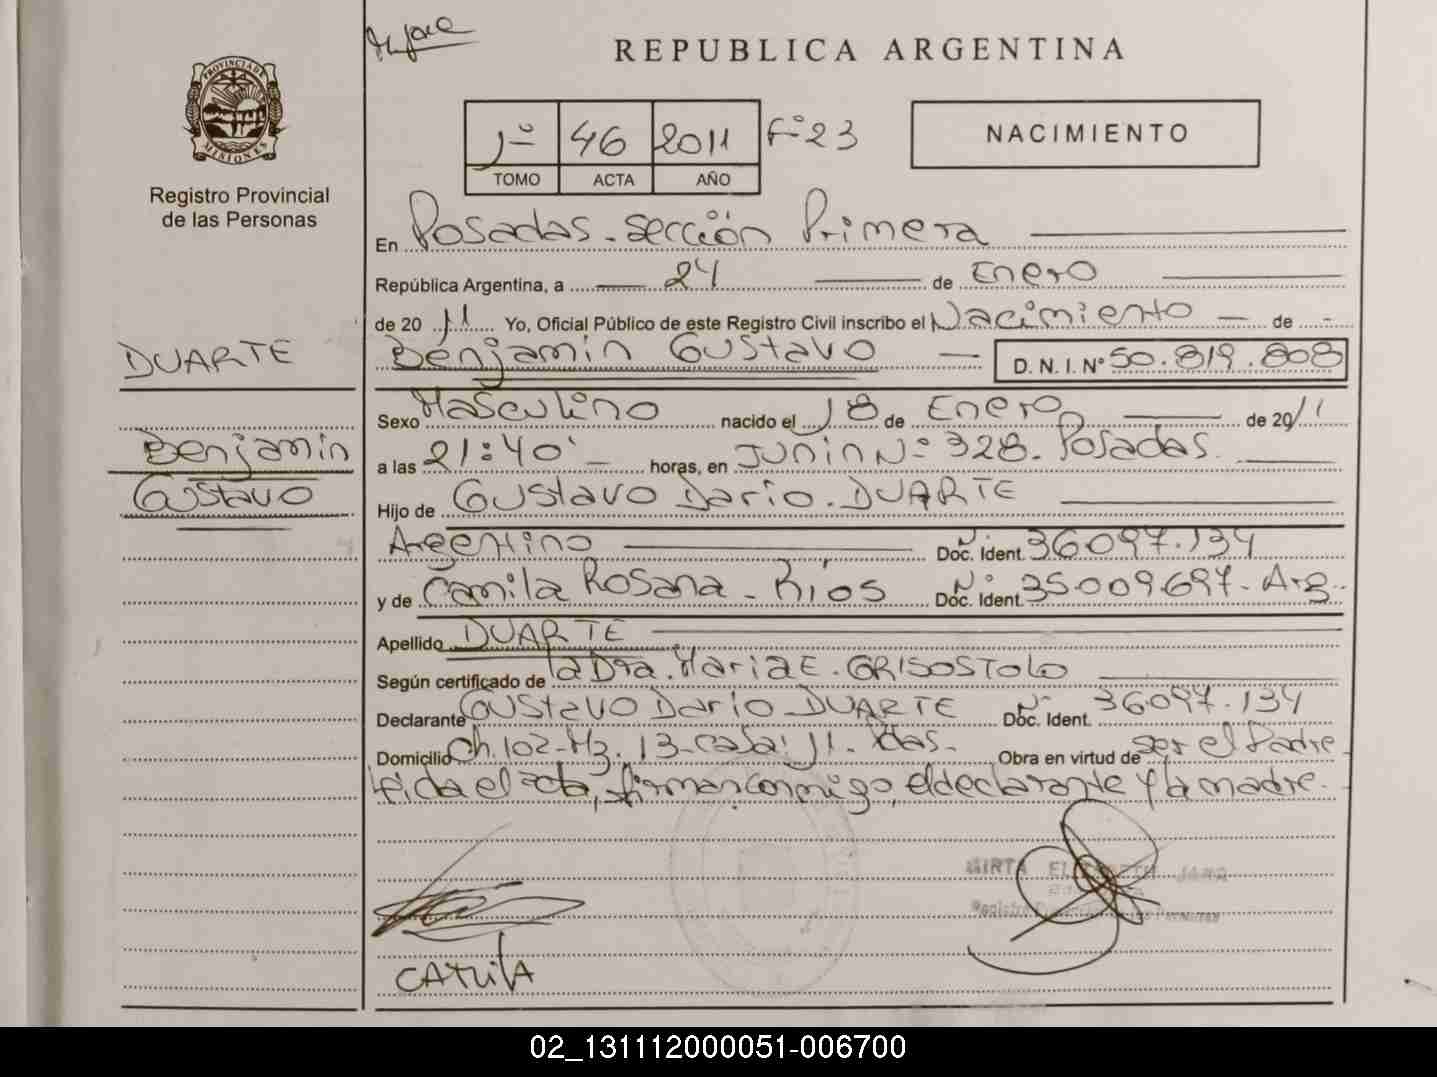 PROVINCIA DE
MISIONES
Registro Provincial
de las Personas
REPUBLICA ARGENTINA
1º 46 2011 Fº 23
TOMO ACTA AÑO
NACIMIENTO
En Posadas - Sección Primera
República Argentina, a 24 de Enero
de 20 11 Yo, Oficial Público de este Registro Civil inscribo el Nacimiento de
DUARTE
Benjamin Gustavo D. N. I. Nº 50.819.808
Sexo Masculino nacido el 18 de Enero de 20 11
Benjamin
a las 21:40' horas, en Junin Nº 328. Posadas.
Gustavo
Hijo de Gustavo Dario. DUARTE
Argentino Nº Doc. Ident. 36097.134
y de Camila Rosana - Ríos Nº Doc. Ident. 35009697 - Arg.
Apellido DUARTE
Según certificado de la Dra. Maria E. GRISOSTOLO
Declarante Gustavo Dario DUARTE Nº Doc. Ident. 36097.134
Domicilio Ch. 102 - Mz. 13 - casa: 11. Pdas. Obra en virtud de ser el Padre
Leida el acta, firman conmigo, el declarante y la madre.
MIRTA ELIZABETH JARA
CAMILA
02_131112000051-006700